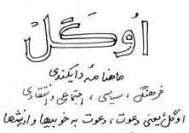 اوگل
ماهنامهٔ دایکندی
فرهنگی، سیاسی، اجتماعی و انتقادی
اوگل یعنی دعوت، دعوت به خوبیها و ارزشها